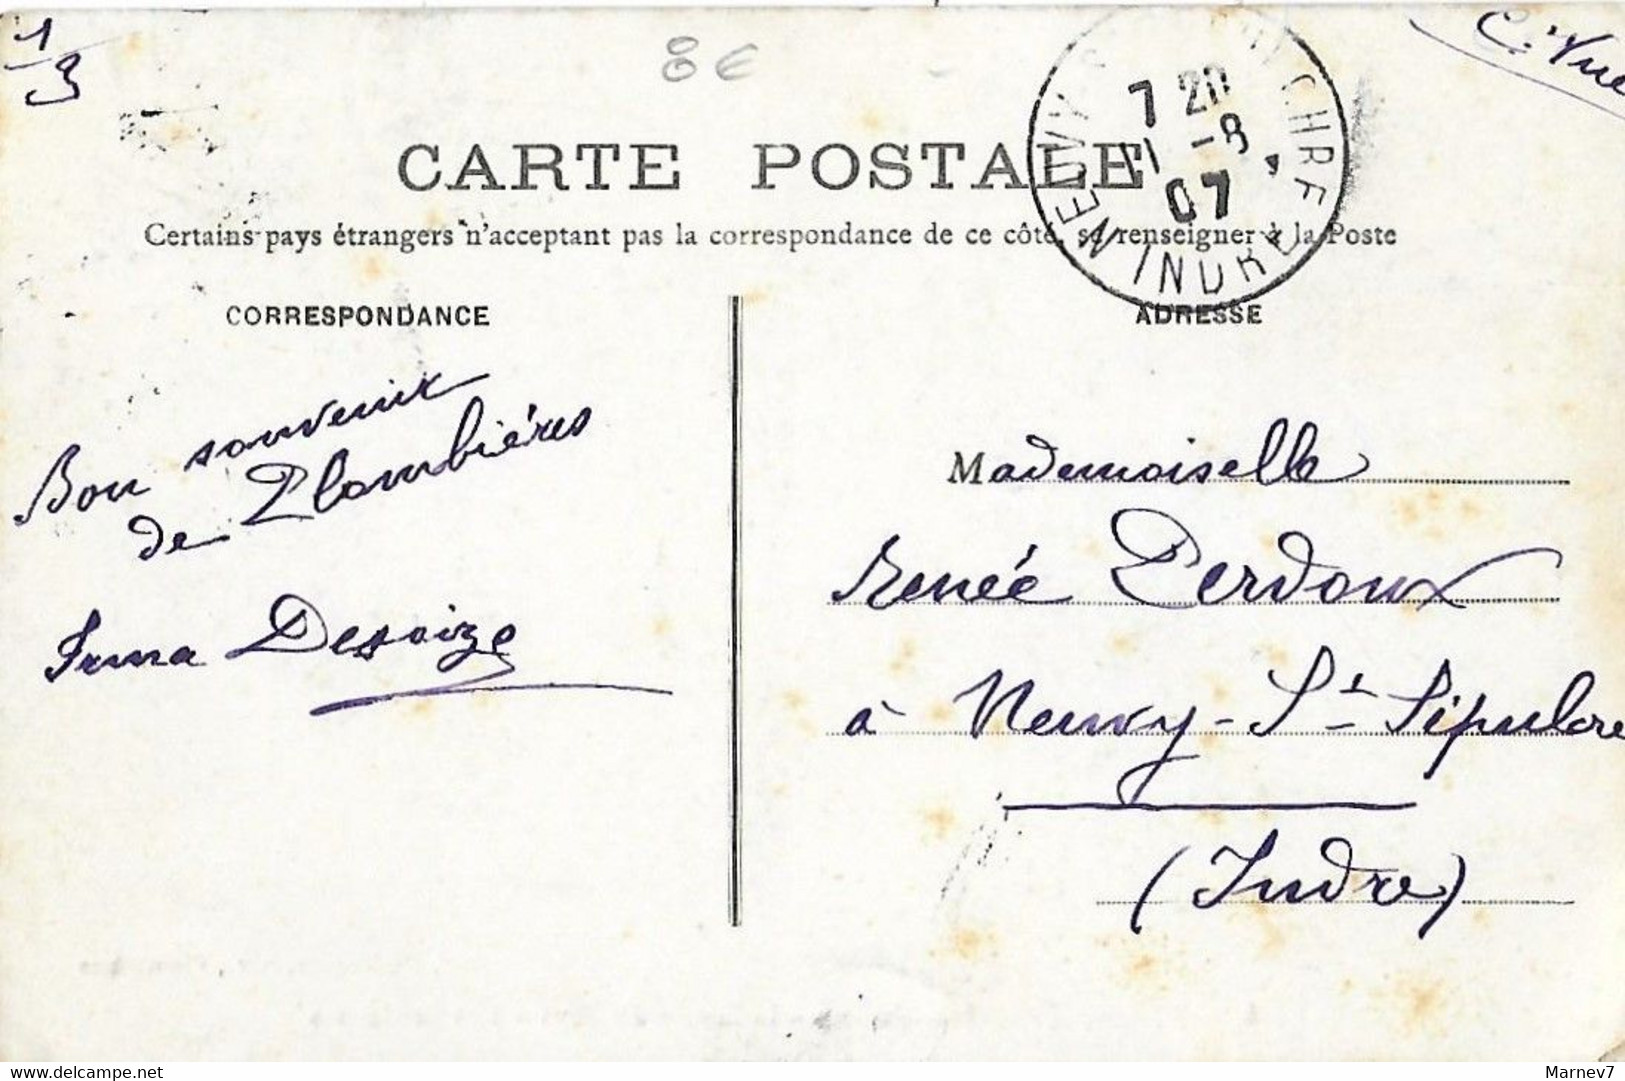 1
3
8€
C. Vue
7 20
11 -8
07
NEUVY-ST SEPULCHRE
INDRE
CARTE POSTALE
Certains pays étrangers n'acceptant pas la correspondance de ce côté, se renseigner à la Poste
CORRESPONDANCE
ADRESSE
Bon souvenir
de Plombières
Irma Desoize
Mademoiselle
Renée Perdoux
à Neuvy-St-Sipulcre
(Indre)
https://www.delcampe.net
Marnev7